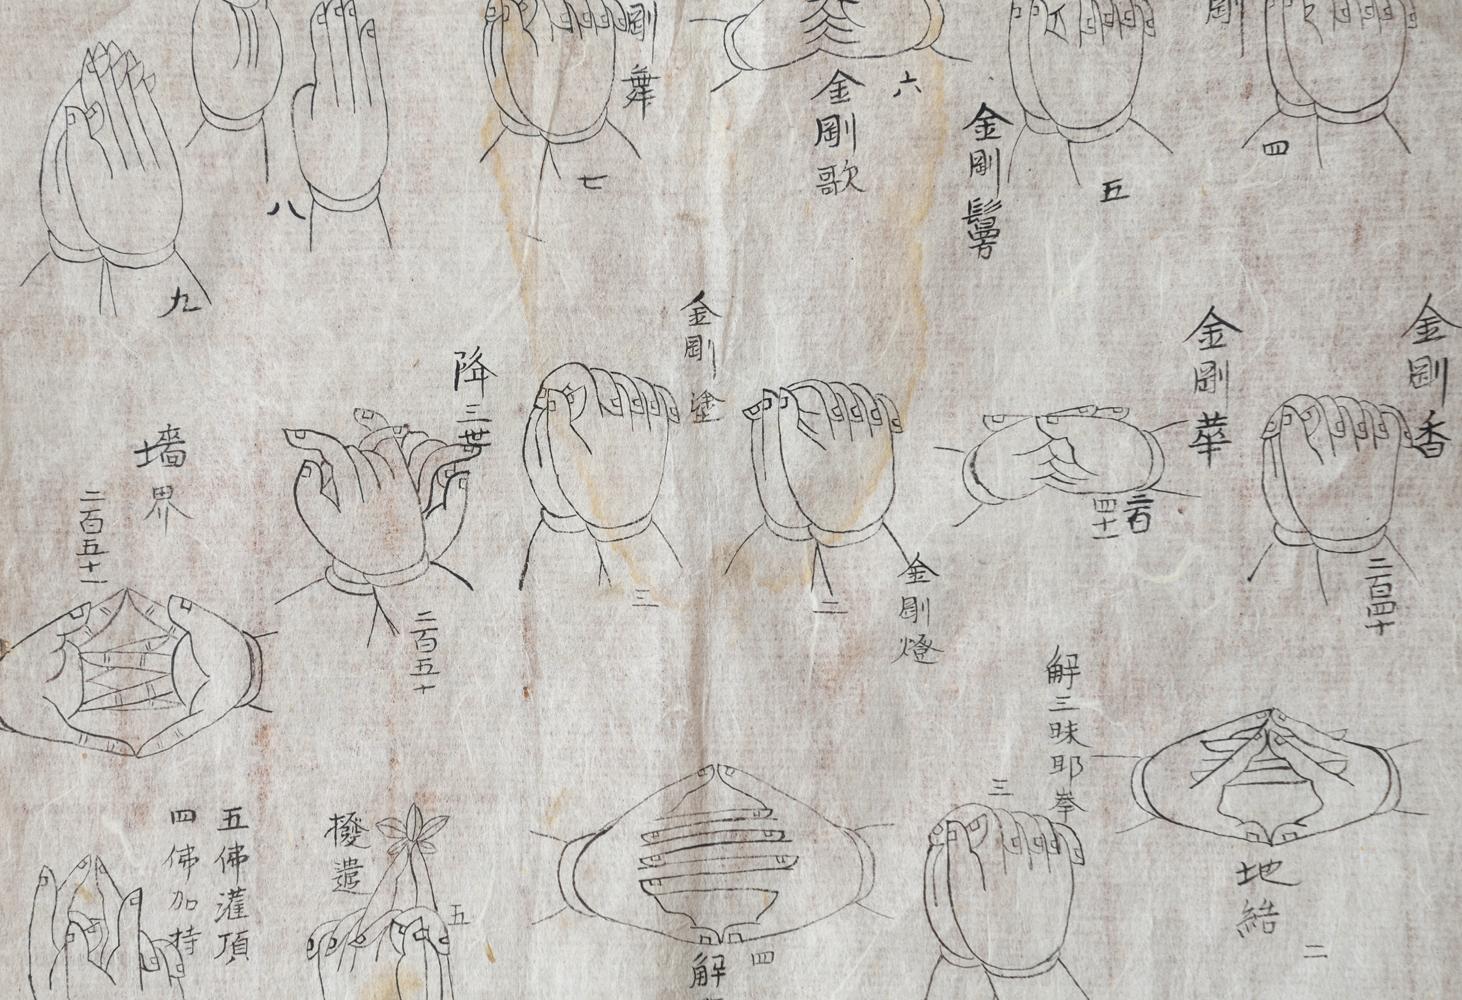 剛
四
剛舞
七
金剛歌
六
金剛鬘
五
八
九
金剛香
二百四十
金剛華
二百四十一
金剛燈
二
金剛塗
三
降三世
二百五十
墻界
二百五十一
地結
二
解三昧耶拳
三
解
四
撥遣
五
五佛灌頂
四佛加持